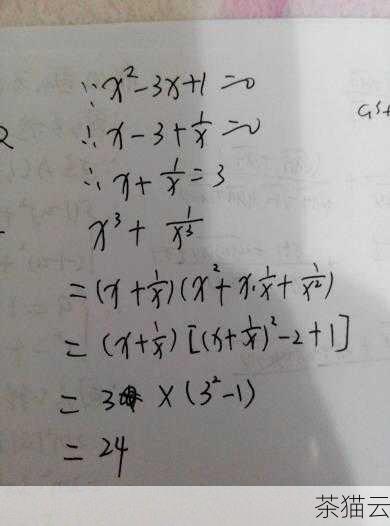 ∵ x² - 3x + 1 = 0
∴ x - 3 + 1/x = 0
∴ x + 1/x = 3
x³ + 1/x³
= (x + 1/x) (x² + x·1/x + 1/x²)
= (x + 1/x) [(x + 1/x)² - 2 + 1]
= 3 × (3² - 1)
= 24
茶猫云